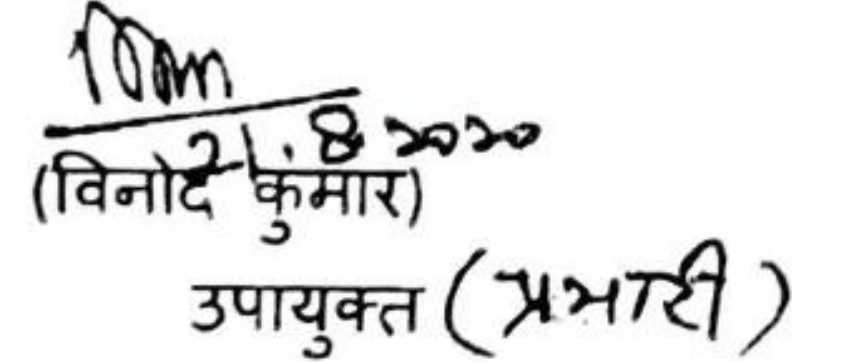 21.8.2020
(विनोद कुमार)
उपायुक्त (प्रभारी)